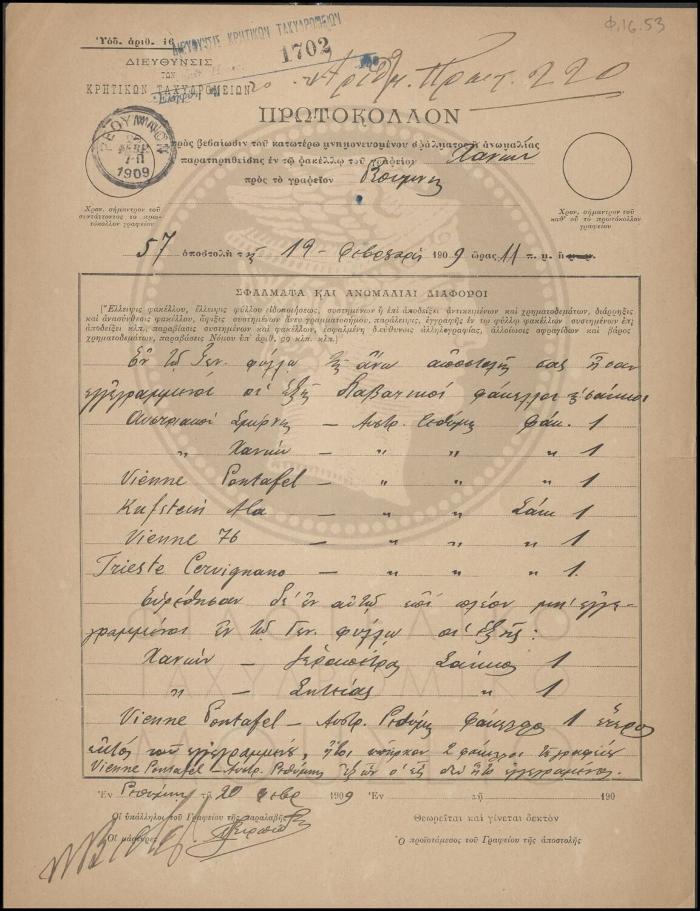 Φ.16.53
Ὑπόδ. ἀριθ. 16
ΔΙΕΥΘΥΝΣΙΣ ΚΡΗΤΙΚΩΝ ΤΑΧΥΔΡΟΜΕΙΩΝ
1702
ΔΙΕΥΘΥΝΣΙΣ
ΤΩΝ
ΚΡΗΤΙΚΩΝ ΤΑΧΥΔΡΟΜΕΙΩΝ
Ἀριθμ. Πρωτ. 220
ΠΡΩΤΟΚΟΛΛΟΝ
πρὸς βεβαίωσιν τοῦ κατωτέρω μνημονευομένου σφάλματος ἢ ἀνωμαλίας
παρατηρηθείσης ἐν τῷ φακέλλῳ τοῦ γραφείου Χανίων
πρὸς τὸ γραφεῖον Ρεθύμνης
ΡΕΘΥΜΝΟΝ
1909
Χρον. σήμαντρον τοῦ
συντάττοντος τὸ πρω-
τόκολλον γραφείου
Χρον. σήμαντρον τοῦ
καθ' οὗ τὸ πρωτόκολλον
γραφείου
57 ἀποστολὴ τῆς 19 Φεβρουαρίου 1909 ὥρας 11 π. μ. ἢ
ΣΦΑΛΜΑΤΑ ΚΑΙ ΑΝΩΜΑΛΙΑΙ ΔΙΑΦΟΡΟΙ
(Ἔλλειψις φακέλλου, ἔλλειψις φύλλου εἰδοποιήσεως, συστημένων ἢ ἐπὶ ἀποδείξει ἀντικειμένων καὶ χρηματοδεμάτων, διάρρηξις
καὶ ἀνασύνθεσις φακέλλου, ἄφιξις συστημένων ἄνευ γραμματοσήμου, παράλειψις, ἐγγραφῆς ἐν τῷ φύλλῳ φακέλλου συστημένων ἐπὶ
ἀποδείξει κλπ. παραβίασις συστημένων καὶ φακέλλου, ἐσφαλμένη διεύθυνσις ἀλληλογραφίας, ἀλλοίωσις σφραγίδων καὶ βάρος
χρηματοδεμάτων, παραβάσεις Νόμου ὑπ' ἀριθ. 99 κλπ. κλπ.)
Ἐν τῷ Γεν. φύλλῳ τῆς ἄνω ἀποστολῆς σας ἦσαν
ἐγγεγραμμένοι οἱ ἑξῆς φάκελλοι σάκκοι
Αὐστριακοὶ Σμύρνης – Αὐστρ. Ρεθύμνης φάκ. 1
〃 Χανίων – 〃 〃 〃 1
Vienne Pontafel – 〃 〃 〃 1
Kufstein Ala – 〃 〃 Σάκ. 1
Vienne 76 – 〃 〃 〃 1
Trieste Cervignano – 〃 〃 〃 1
Εὑρέθησαν δὲ ἐν αὐτῷ ἐπὶ πλέον μὴ ἐγγε-
γραμμένοι ἐν τῷ Γεν. φύλλῳ οἱ ἑξῆς:
Χανίων – Ἱεράπετρας Σάκκος 1
〃 – Σητείας 〃 1
Vienne Pontafel – Αὐστρ. Ρεθύμνης φάκελλος 1 ἕτερος
ἐκτὸς τοῦ ἐγγεγραμμένου, ἤτοι ὑπῆρχον 2 φάκελλοι
Vienne Pontafel – Αὐστρ. Ρεθύμνης ἐξ ὧν ὁ εἷς δὲν ἦτο ἐγγεγραμμένος.
Ἐν Ρεθύμνῃ τῇ 20 Φεβρ 1909 Ἐν τῇ 190
Οἱ ὑπάλληλοι τοῦ Γραφείου τῆς παραλαβῆς
Οἱ μάρτυρες
Θεωρεῖται καὶ γίνεται δεκτὸν
Ὁ προϊστάμενος τοῦ Γραφείου τῆς ἀποστολῆς